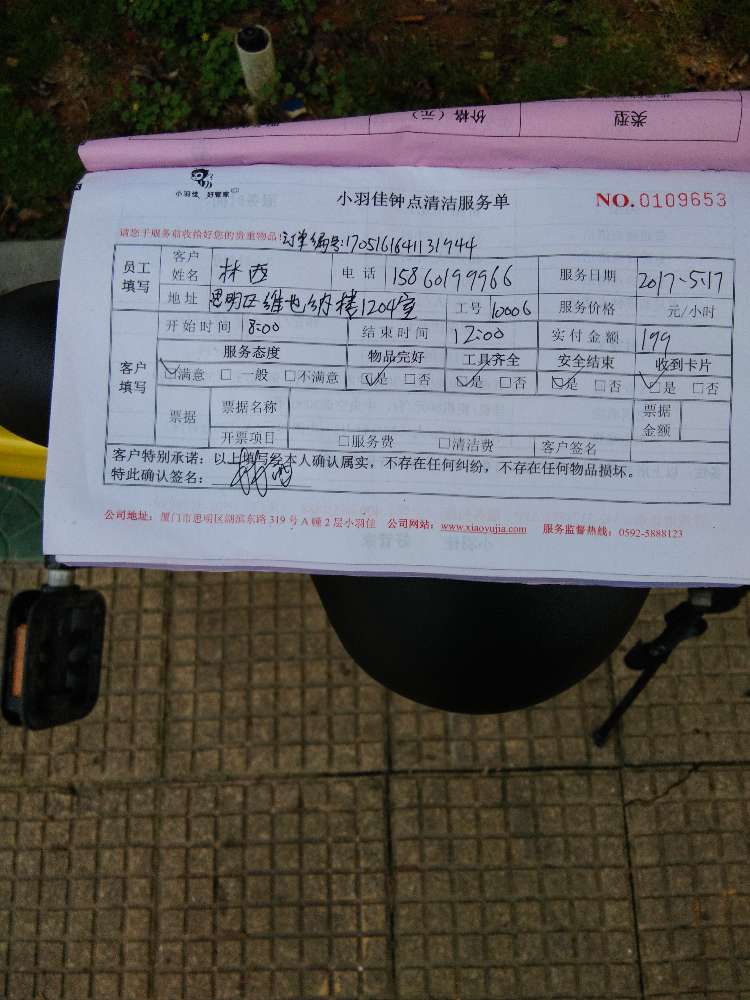 类型 价格（元）
小羽佳 好管家
小羽佳钟点清洁服务单 NO.0109653
请您于服务前收拾好您的贵重物品！订单编号:170516164113 1944
员工填写 客户姓名 林西 电话 15860199966 服务日期 2017-5.17
地址 思明区维也纳楼1204室 工号 10006 服务价格 元/小时
客户填写 开始时间 8:00 结束时间 12:00 实付金额 199
服务态度 物品完好 工具齐全 安全结束 收到卡片
☑满意 □一般 □不满意 ☑是 □否 ☑是 □否 ☑是 □否 ☑是 □否
票据 票据名称 票据金额
开票项目 □服务费 □清洁费 客户签名
客户特别承诺：以上填写经本人确认属实，不存在任何纠纷，不存在任何物品损坏。
特此确认签名： 林西
公司地址：厦门市思明区湖滨东路319号A幢2层小羽佳 公司网站：www.xiaoyujia.com 服务监督热线：0592-5888123